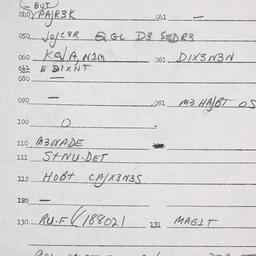 BUT
040 PA/R3K 041 —
050 Jo/C3R Q GL D3 SEDR3
060 KQ/A, N1M 061 DIX3N3N
062 E DIXNT
080 —
090 — 091 M3 HA/BT OS
100 O
110 M3NADE
111 S+NU.DET
112 HOBT CA/X3N3S
120 —
130 RU.F (188021 131 MAG1T